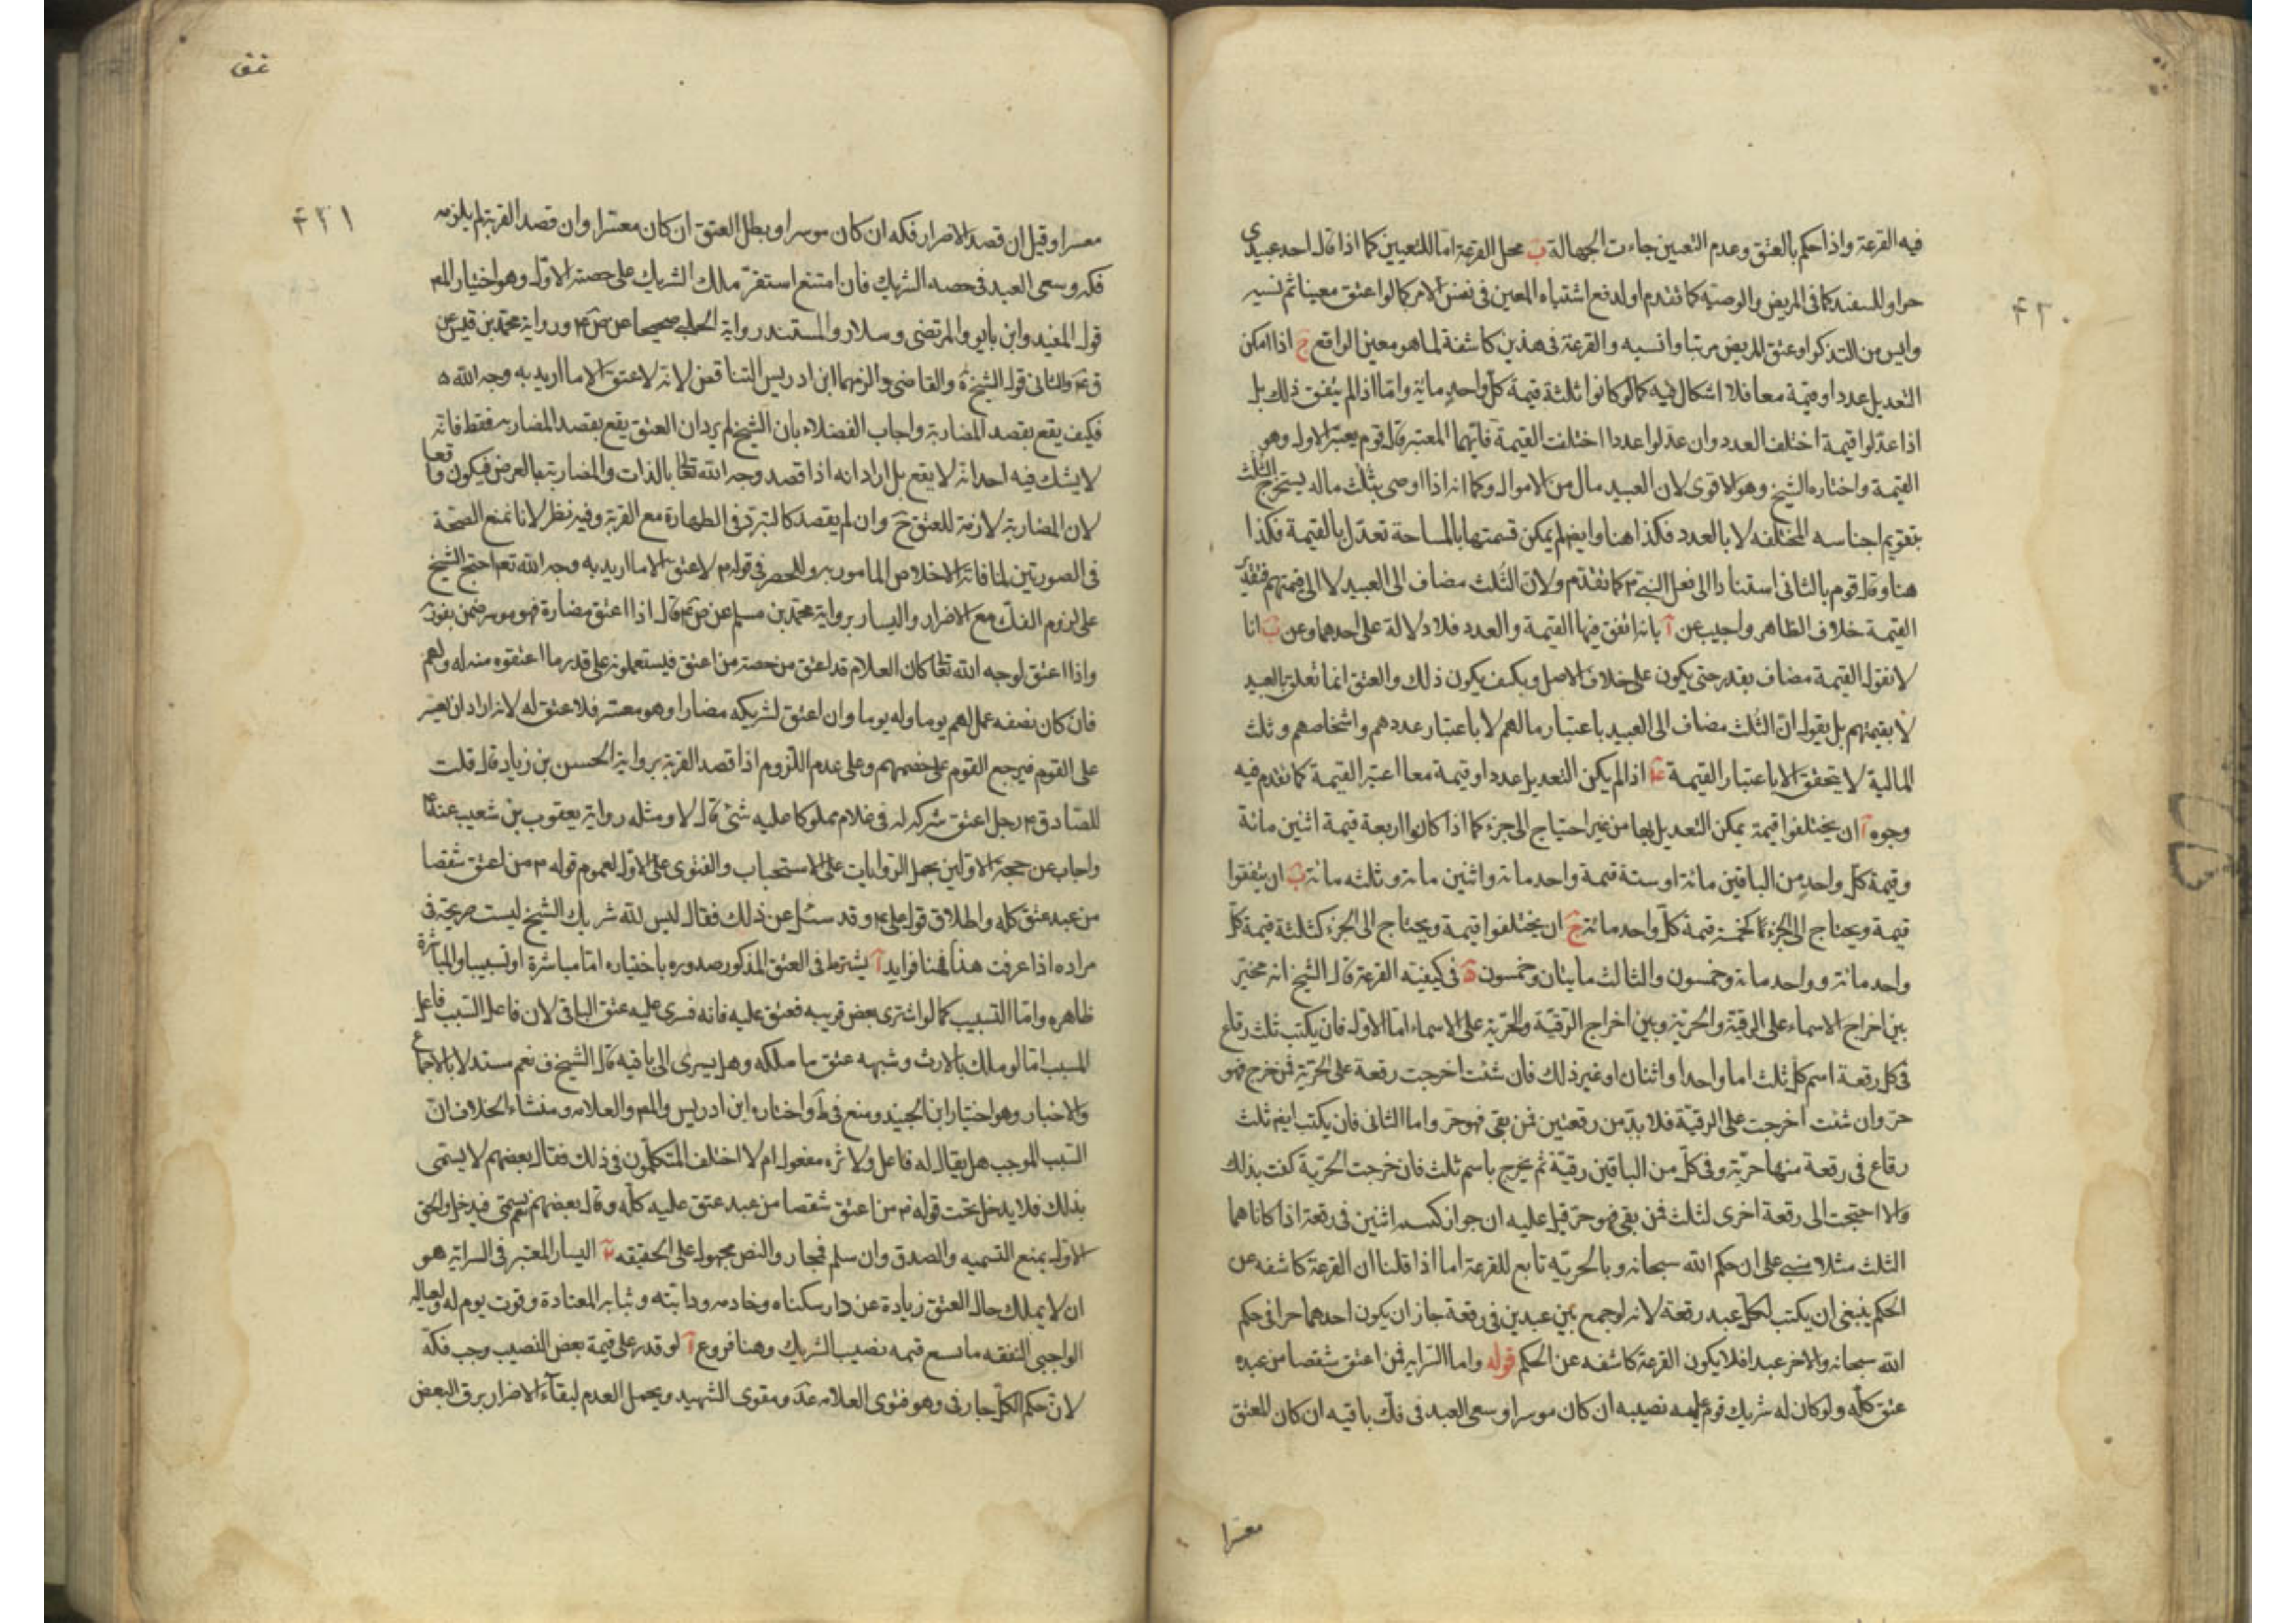 ٤٢٠
فيه القرعة واذا حكم بالعتق وعدم التعين جاءت الجهالة ب محل القرعة امّا للتعيين كما اذا قال احد عبيدى
حرا وللسفند كما فى المريض والوصيّه كما تقدم او لدفع اشتباه المعين فى نفس الامر كما لو اعتق معينا ثم نسيه
وايس من التذكر او عتق المريض مرتبا وانسيه والقرعة فى هذين كاشفة لما هو معين الواقع ج اذا امكن
التعديل عددا وقيمة معا فلا اشكال فيه كما لو كانوا ثلثة قيمة كلّ واحد مائة وامّا اذا لم يتفق ذلك بل
اذا عدّلوا قيمة اختلف العدد وان عدّلوا عددا اختلفت القيمة فايّهما المعتبر قال قوم يعتبر الاول وهو
القيمة واختاره الشيخ وهو الاقوى لان العبيد مال من الاموال وكما انه اذا اوصى بثلث ماله يستخرج الثلث
بتقويم اجناسه المختلفه لا بالعدد فكذا هنا وايضا لم يمكن قسمتها بالمساحة تعدّل بالقيمة فكذا
هنا وقال قوم بالثانى استنادا الى فعل النبى ص كما تقدّم ولان الثلث مضاف الى العبيد لا الى قيمتهم فتقدير
القيمة خلاف الظاهر واجيب عن آ بانه اتفق فيها القيمة والعدد فلا دلالة على احدهما وعن ب انا
لا نقول القيمة مضاف بقدر حتى يكون على خلاف الاصل وبكيف يكون ذلك والعتق انما تعلق بالعبيد
لا بقيمتهم بل يقول انّ الثلث مضاف الى العبيد باعتبار مالهم لا باعتبار عددهم واشخاصهم وثلث
المالية لا يتحقق الا باعتبار القيمة د اذا لم يكن التعديل عددا وقيمة معا اعتبر القيمة كما تقدم فيه
وجوه آ ان يختلفوا قيمة يمكن التعديل بها من غير احتياج الى جزء كما اذا كانوا اربعة قيمة اثنين مائة
وقيمة كلّ واحد من الباقين مائة او ستة قيمة واحد مائة واثنين مائة وثلثه مائة ب ان يتفقوا
قيمة ويحتاج الى الجزء كخمسة قيمة كلّ واحد مائة ج ان يختلفوا قيمة ويحتاج الى الجزء كثلثة قيمة كل
واحد مائة وواحد مائة وخمسون والثالث مايتان وخمسون ه فى كيفيته القرعة قال الشيخ انه مخيّر
بين اخراج الاسماء على الرقيّة والحرّية وبين اخراج الرّقيّة والحرّية على الاسماء امّا الاول فان يكتب ثلث رقاع
فى كل رقعة اسم كل ثلث اما واحدا واثنان او غير ذلك فان شئت اخرجت رقعة على الحرّية فمن خرج فهو
حرّ وان شئت اخرجت على الرقيّة فلا بدّ من رقعتين فمن بقى فهو حرّ واما الثانى فان يكتب ايضا ثلث
رقاع فى رقعة منها حرّية وفى كلّ من الباقين رقيّة ثم يخرج باسم ثلث فان خرجت الحرّية كفت بذلك
والا احتجت الى رقعة اخرى لثلث فمن بقى فهو حرّ قيل عليه ان جواز كتبه اثنين فى رقعة اذا كانا هما
الثلث مثلا مبنى على ان حكم الله سبحانه وبالحريّه تابع للقرعة اما اذا قلنا ان القرعة كاشفه عن
الحكم ينبغى ان يكتب لكلّ عبد رقعة لانه لو جمع بين عبدين فى رقعة جاز ان يكون احدهما حرا فى حكم
الله سبحانه والاخر عبدا فلا يكون القرعة كاشفه عن الحكم قوله واما السّراية فمن اعتق شقصا من عبده
عتق كلّه ولو كان له شريك قوم عليه نصيبه ان كان موسرا وسعى العبد فى فكّ باقيه ان كان المعتق
معسرا
عتق
٤٢١
معسرا وقيل ان قصد الاضرار فكه ان كان موسرا وبطل العتق ان كان معسّرا وان قصد القربة لم يلزمه
فكه وسعى العبد فى حصه الشريك فان امتنع استقرّ ملك الشريك على حصته الاوّل وهو اختيار المص
قول المفيد وابن بابويه والمرتضى وسلار والمستند رواية الحلبى صحيحا عن ص ع ورواية محمد بن قيس عن
ق ع والثانى قول الشيخ ره والقاضى والزمهما ابن ادريس التناقض لانه لا عتق الا ما اريد به وجه الله
فكيف يقع بقصد المضارية واجاب الفضلاء بان الشيخ لم يرد ان العتق يقع بقصد المضاريه فقط فانّه
لا يشك فيه احد انه لا يقع بل اراد انه اذا قصد وجه الله تعالى بالذات والمضارية بالعرض فيكون واقعا
لان المضارية لازمة للعتق ح وان لم يقصد كالتبرّد فى الطهارة مع القربة وفيه نظر لانا نمنع الصّحة
فى الصورتين لمنافاته الاخلاص المامور به وللحصر فى قوله م لا عتق الا ما اريد به وجه الله تعم احتج الشيخ
على لزوم الفك مع الاضرار واليسار برواية محمد بن مسلم عن ص ع قال اذا اعتق مضارة فهو موسر ضمن بقوت
واذا اعتق لوجه الله تعالى كان الغلام قد اعتق من حصته من اعتق فيستعملونه على قدر ما اعتقوه منه له ولهم
فان كان نصفه عمل لهم يوما وله يوما وان اعتق لشريكه مضارا وهو معسّر فلا عتق له لانه اراد ان يفسد
على القوم فيرجع القوم على حصصهم وعلى عدم اللّزوم اذا قصد القربة برواية الحسن بن زياد قال قلت
للصّادق ع رجل اعتق شركه له فى غلام مملوكا عليه شئ قال لا ومثله رواية يعقوب بن شعيب عنه ع
واجاب عن حجة الاوّلين بحمل الرّوايات على الاستحباب والفتوى على الاوّل لعموم قوله م من اعتق شقصا
من عبد عتق كله واطلاق قول على ع وقد سئل عن ذلك فقال ليس لله شريك الشيخ ليست صريحة فى
مراده اذا عرفت هذا فهنا فوايد آ يشترط فى العتق المذكور صدوره باختياره امّا مباشرة او تسبيبا والمباشرة
ظاهره وامّا التسبيب كما لو اشترى بعض قريبه فعتق عليه فانه فسرى عليه عتق الباقى لان فاعل السّبب فاعل
المسبب امّا لو ملك بالارث وشبهه عتق ما ملكه وهل يسرى الى باقيه قال الشيخ ف نعم مستدلا بالاجماع
والاخبار وهو اختيار ابن الجنيد ومنع فى ط واختاره ابن ادريس والمص والعلامه ومنشاء الخلاف انّ
السّبب الموجب هل يقال له فاعل ولاثره مفعول ام لا اختلف المتكلّمون فى ذلك فقال بعضهم لا يسمّى
بذلك فلا يدخل تحت قوله م من اعتق شقصا من عبد عتق عليه كلّه وقال بعضهم نعم يسمّى فيدخل والحق
الاول بمنع التسميه والصدق وان سلم فمجاز والنص محمول على الحقيقه ب اليسار المعتبر فى السراية هو
ان لا يملك حال العتق زيادة عن دار سكناه وخادمه ودابّته وثيابه المعتادة وقوت يوم له ولعياله
الواجبى النفقه ما يسع قيمه نصيب الشريك وهنا فروع آ لو قدر على قيمة بعض النصيب وجب فكّه
لانّ حكم الكلّ جار فى وهو فتوى العلامه عد ومقوى الشهيد ويحمل العدم لبقاء الاضرار برق البعض